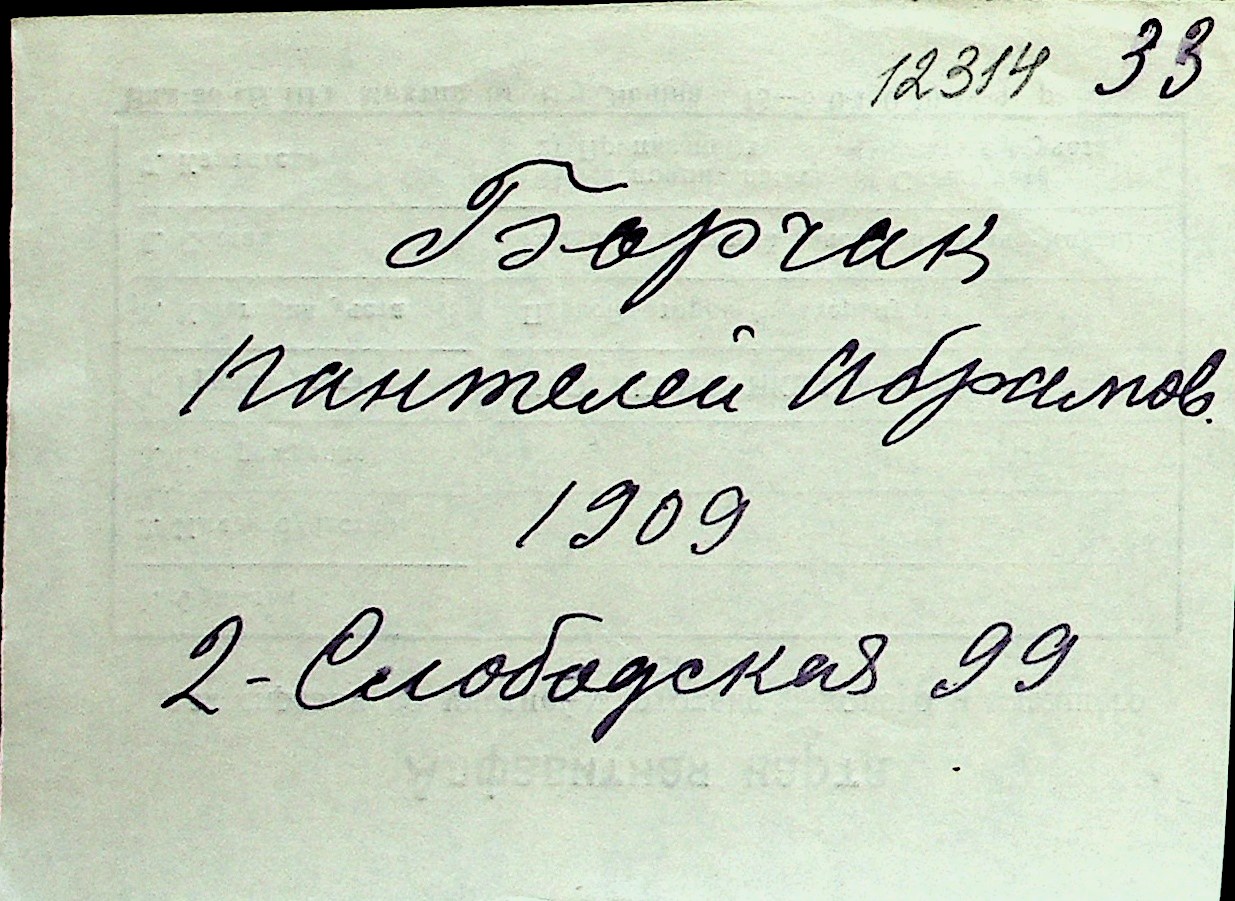 12314 33
Борчак
Пантелей Абрамов.
1909
2-Слободская 99